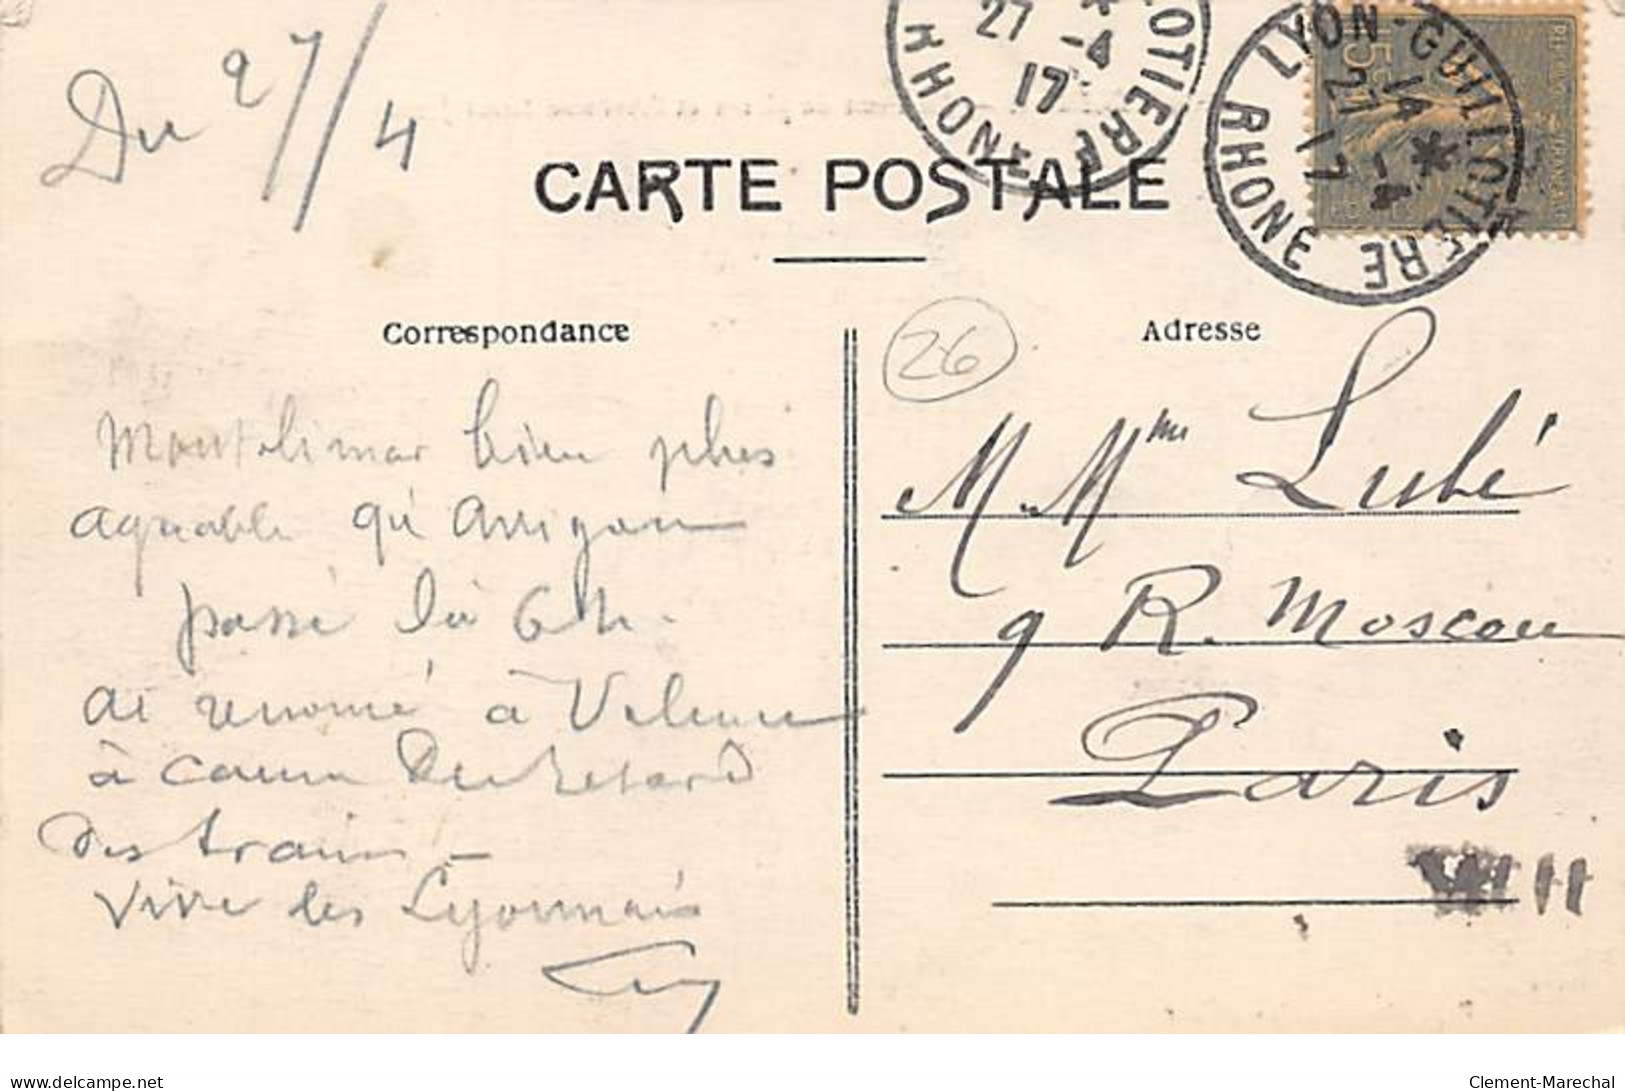 Du 27/4
27 -4
17
RHONE
LYON-GUILLOTIERE
14 *
27 -4
17
RHONE
15c
CARTE POSTALE
Correspondance
26
Adresse
Montelimar bien plus
agreable qu'
passé là 6 h.
à Valence
à cause Du retard
Des trains -
Vive les Lyonnais
M. Mme Lubé
9 R. Moscou
Paris
VIII
delcampe.net
Clement-Marechal